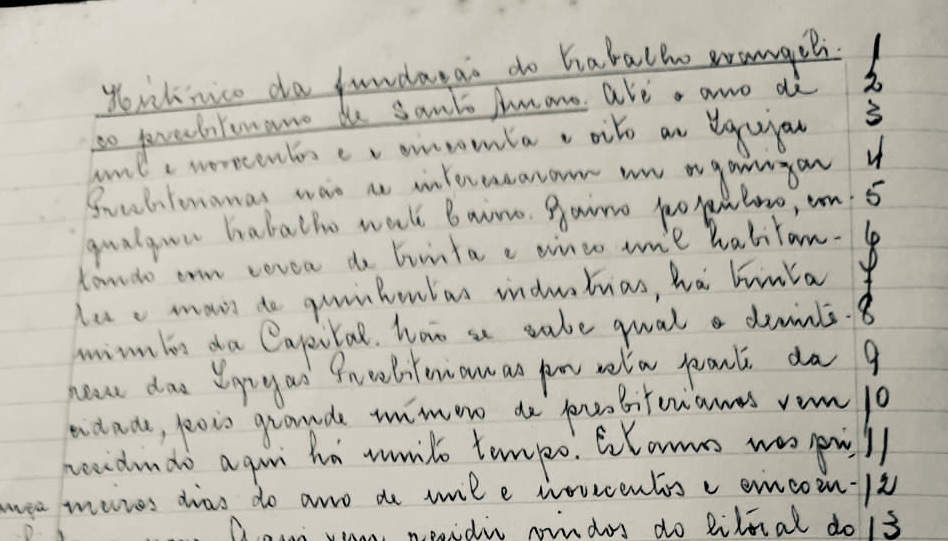 Histórico da fundação do trabalho evangéli- 1
co presbiteriano de Santo Amaro. Até o ano de 2
mil e novecentos e e cincoenta e oito as Igrejas 3
Presbiterianas não se interessaram em organizar 4
qualquer trabalho neste bairro. Bairro populoso, con- 5
tando com cerca de trinta e cinco mil habitan- 6
tes e mais de quinhentas industrias, há trinta 7
minutos da Capital. Não se sabe qual o desinte- 8
resse das Igrejas Presbiterianas por esta parte da 9
cidade, pois grande número de presbiterianos vem 10
residindo aqui há muito tempo. Estamos nos pri 11
meiros dias do ano de mil e novecentos e cincoen- 12
vem residir vindos do litoral do 13